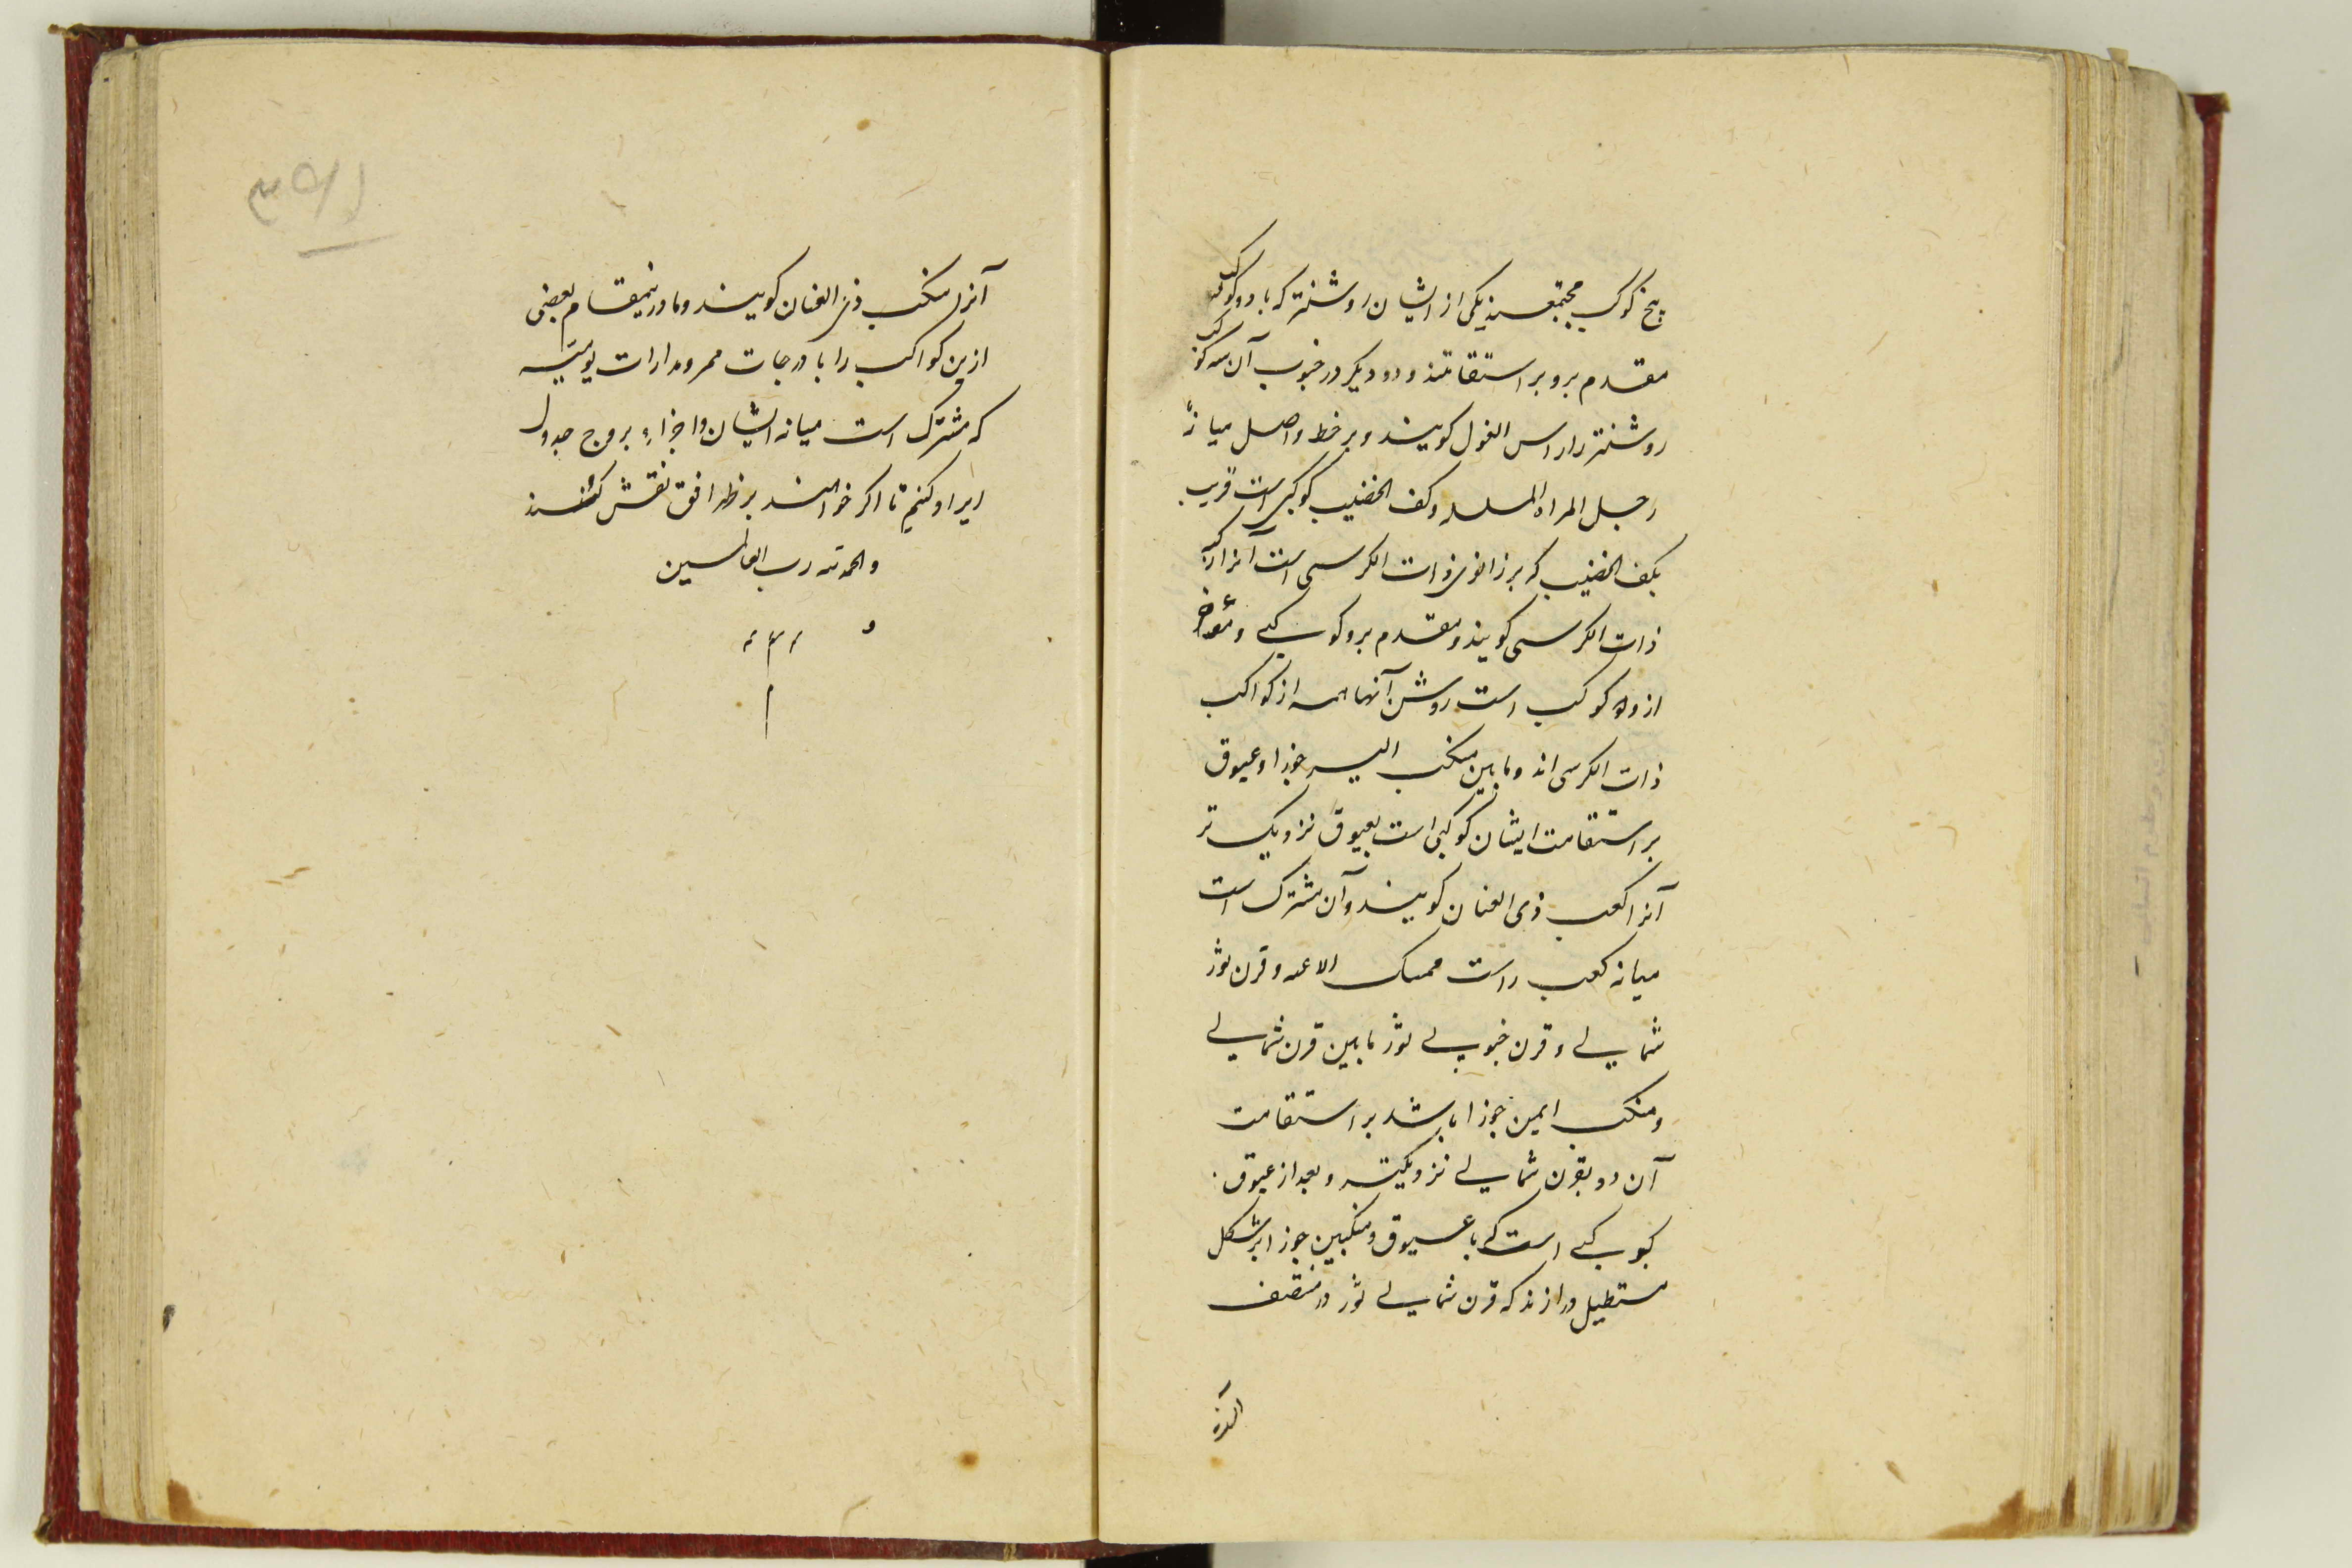 پنج کوکب مجتمعند یکی از ایشان روشنتر که با دو کوکب
مقدم برو بر استقامتند و دو دیگر در جنوب آن سه کوکب
روشنتر را راس الغول کویند و بر خط واصل میانهٔ
رجل المراه المسلسله و کف الخضیب کوکبی است قریب
بکف الخضیب که بر زانوی ذات الکرسی است آنرا رکبه
ذات الکرسی کویند و مقدم برو کوکبی و مؤخر
ازو کوکب است روشن آنها همه از کواکب
ذات الکرسی اند و مابین منکب الیسر جوزا و عیوق
بر استقامت ایشان کوکبی است بعیوق نزدیک تر
آنرا کعب ذی العنان کویند و آن مشترک است
میانه کعب راست ممسک الاعنه و قرن ثور
شمالی و قرن جنوبی ثور مابین قرن شمالی
و منکب ایمن جوزا باشد بر استقامت
آن دو بقرن شمالی نزدیکتر و بعد از عیوق
کوکبی است که با عیوق و منکبین جوزا بر شکل
مستطیل درازند که قرن شمالی ثور در منتصف
۳۵۱
آنرا منکب ذی العنان کویند و ما درینمقام بعضی
ازین کواکب را با درجات ممر و مدارات یومیه
که مشترک است میانه ایشان و اجزاء بروج جدول
ایراد کنیم تا اکر خواهند بر ظهر افق نقش کنند
و الحمد لله رب العالمین